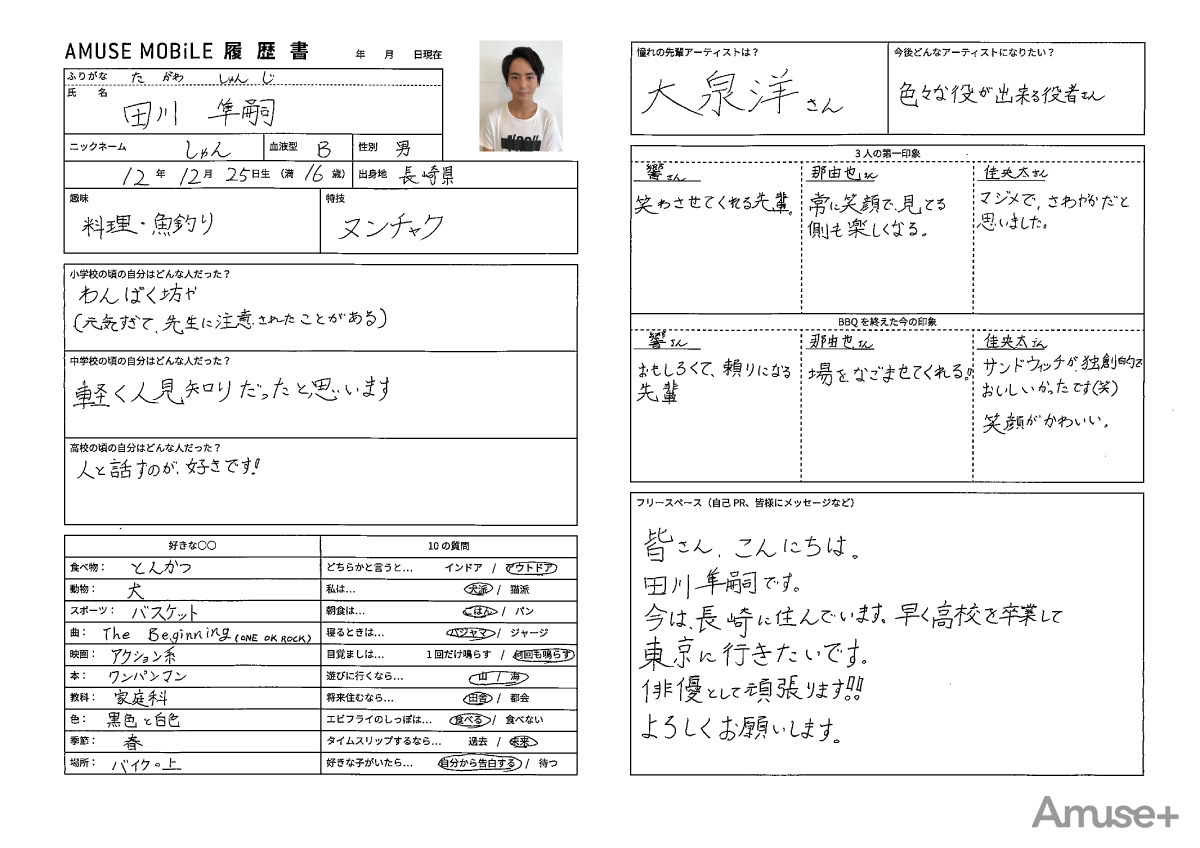 AMUSE MOBiLE 履歴書
年 月 日現在
ふりがな たがわ しゅんじ
氏名
田川 隼嗣
ニックネーム しゅん 血液型 B 性別 男
12年 12月 25日生 (満 16 歳) 出身地 長崎県
趣味
料理・魚釣り
特技
ヌンチャク
小学校の頃の自分はどんな人だった?
わんぱく坊や
(元気すぎて、先生に注意されたことがある)
中学校の頃の自分はどんな人だった?
軽く人見知りだったと思います
高校の頃の自分はどんな人だった?
人と話すのが、好きです!
好きな〇〇
食べ物: とんかつ
動物: 犬
スポーツ: バスケット
曲: The Beginning (ONE OK ROCK)
映画: アクション系
本: ワンパンマン
教科: 家庭科
色: 黒色と白色
季節: 春
場所: バイクの上
10の質問
どちらかと言うと… インドア / アウトドア
私は… 犬派 / 猫派
朝食は… ごはん / パン
寝るときは… パジャマ / ジャージ
目覚ましは… 1回だけ鳴らす / 何回も鳴らす
遊びに行くなら… 山 / 海
将来住むなら… 田舎 / 都会
エビフライのしっぽは… 食べる / 食べない
タイムスリップするなら… 過去 / 未来
好きな子がいたら… 自分から告白する / 待つ
憧れの先輩アーティストは?
大泉洋さん
今後どんなアーティストになりたい?
色々な役が出来る役者さん
3人の第一印象
響さん
笑わさせてくれる先輩。
那由也さん
常に笑顔で、見てる
側も楽しくなる。
佳央太さん
マジメで、さわやかだと
思いました。
BBQを終えた今の印象
響さん
おもしろくて、頼りになる
先輩
那由也さん
場をなごませてくれる!!
佳央太さん
サンドウィッチが、独創的で
おいしいかったです(笑)
笑顔がかわいい。
フリースペース(自己PR、皆様にメッセージなど)
皆さん、こんにちは。
田川隼嗣です。
今は、長崎に住んでいます。早く高校を卒業して
東京に行きたいです。
俳優として頑張ります!!
よろしくお願いします。
Amuse+